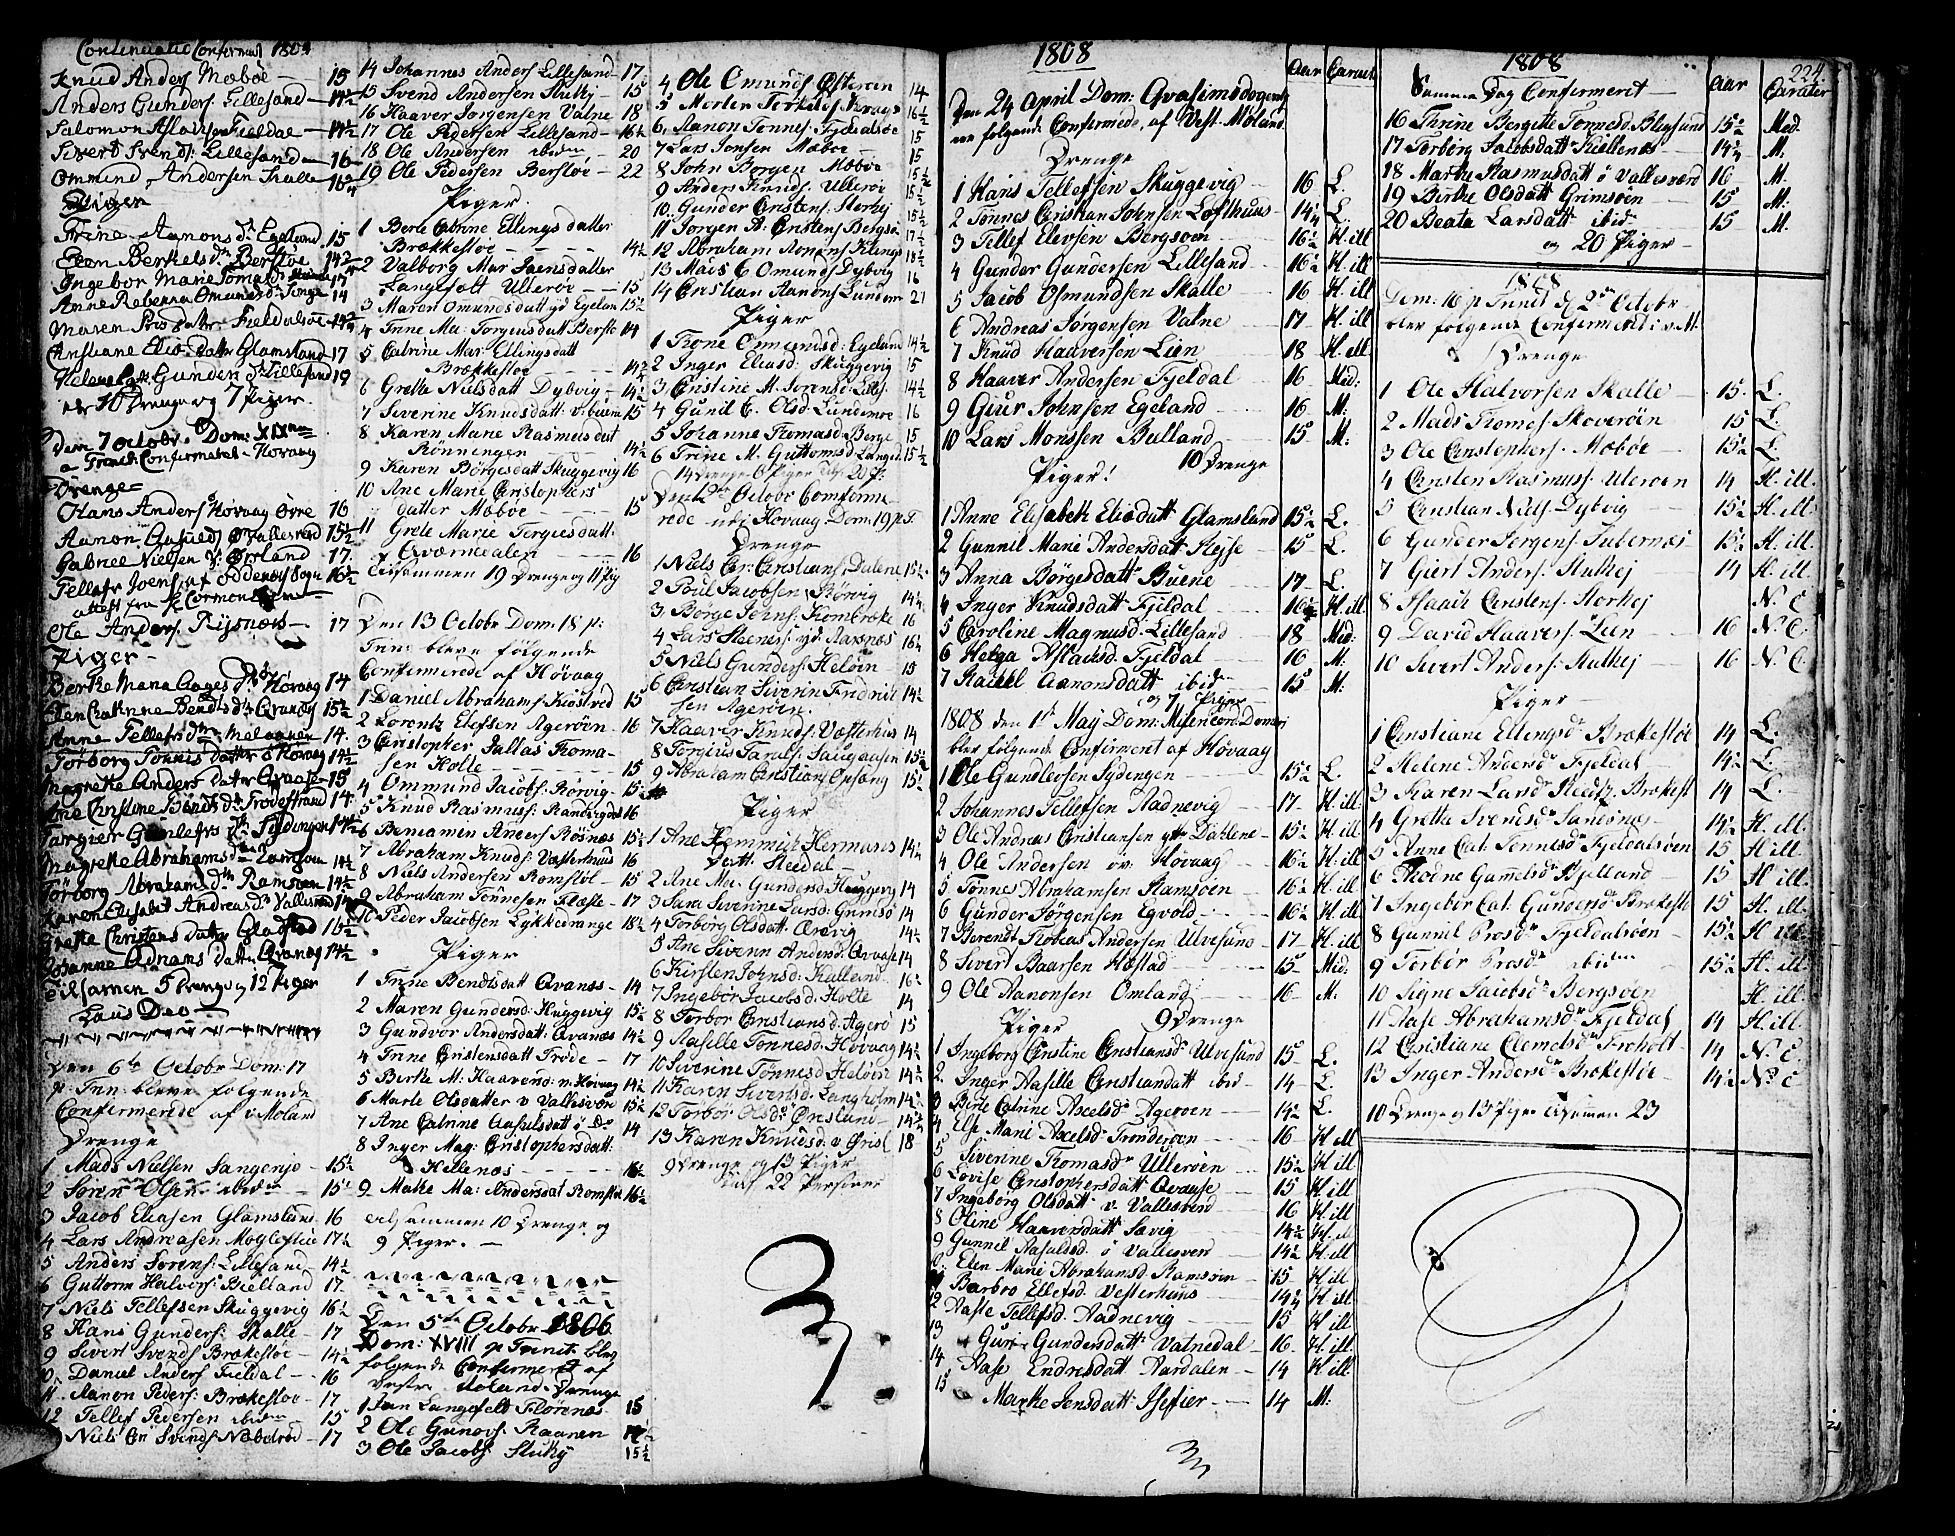 Continuatio Confermat 1804
Knud Anders Mæbøe 15
Anders Gunders. Lillesand 14½
Salomon Aslaksen Fieldal 14½
Sivert Svends: Lillesand 16
Ommund Andersen Skalle 16¼
Piger
Trine Aanons dr Egeland 15
Ingebor Marie Tomasd
Anne Rebecca Omunds dr 14
Maren datter Fieldalsøe
Cristiane Elias datr Glamsland 17
Gunders dr Lillesand 19
10 Drenge og 7 Piger
Den 7 octobr. Dom: XIX
a Trinit: Confirmeret Høvaag
Drenge
Hans Anders Høvaag Øvre 16
Aanon Øvallesverd 15½
Gabriel Nielsen Ørland 17
Tellef Joens. af Oddernes Sogn 16½
attest fra
Ole Anders. Risnæs 17
Piger
Berthe Maria Aages dr Høvaag 14
Ellen Cathrine Bendts dr Qvanæs 15½
Anne Tellefs dr 14
Torborg Tønnis datter Høvaag 14½
Magrette Anders datter Qvaase 15
Ane Christine Bendts dr Trodestrand 14
Magrette Abrahams dr Ramsøen 14½
Torborg Abrahams dr Ramsøen 14½
Karen Elisabet Andreas dr Vallesverd 14
Grette Christens datter Gladstad 15½
Johanne Adnams datter Qvanæs 14½
Tilsamen 5 Drenge og 12 Piger
Laus Deo
Den 6te Octobr Dom: 17
p. Trin: bleve følgende
Confermerede af V: Moland
Drenge
1 Mads Nielsen Sangereje 15½
2 Søren Olsen ibidm 15½
3 Jacob Eliasen Glamsland 16
4 Lars Andreasen Møglestue 17½
5 Anders Sørens: Lillesand 14½
6 Guttorm Halvors: Bielland 17
7 Niels Tellefsen Skuggevig 16½
8 Hans Gunders: Skalle 17
9 Sivert Svends Brækestøe 14½
10 Daniel Anders Fieldal 16
11 Aanon Peders: Brækestøe 17
12 Tellef Pedersen ibidm 15
Niels Svends 17
14 Johannes Anders Lillesand 17
15 Svend Andersen Stulkej 15
16 Haaver Jørgensen Valne 18
17 Ole Pedersen Lillesand 16½
18 Ole Andersen ibidm 20
19 Ole Pedersen Berstøe 22
Piger
1 Berte Catrine Ellings datter
Brækkestøe 14½
2 Valborg Mar Jaensdatter
Langefelt Ulterøe 15
3 Maren Omundsdatt yd Egelan 15½
4 Trine Ma: Torgiusdatt Berstø 14
5 Catrine Mar. Ellingsdatt
Brækkestøe 14½
6 Grette Nielsdatt Dybvig 14½
7 Siverine Knudsdatt v. buene 15
8 Karen Marie Rasmusdatt
Rønningen 14½
9 Karen Børgesdatt Skuggevig 16
10 Ane Marie Cristophers
datter Mæbøe 15
11 Grete Marie Tergiusdatt:
Qværnedalen 16
Tilsammen 19 Drenge og 11 pig
Den 13 Octobr Dom: 18 p:
Trin: bleve følgende
Confermerede af Høvaag
1 Daniel Abrahams Kiøstved 15
2 Lorentz Elefsen Agerøen 16
3 Cristopher Jallas Toma-
sen Holte 15
4 Ommund Jacobs. Rørvig 15½
5 Knud Rasmus: Randvigen 16
6 Beniamin Anders Røsnæs 15½
7 Abraham Knuds Vasterhuus 16
8 Niels Andersen Romstøl 15
9 Abraham Tønnesen Flæse 17
10 Peder Jacobsen Lykkedrange 18½
Piger
1 Trine Bendtsdatt Qvanæs 14
2 Maren Gundersd: Huggevig 15½
3 Gundvor Andersdatt: Qvanæs 14½
4 Trine Cristensdatt Trøde 17
5 Berte M: Haaversd: n. Høvaag 14½
6 Marte Olsdatter v Vallesværd 15½
7 Ane Catrine Aasulsdatt ö Do 14
8 Inger Mag: Cristophersdatt:
Hellenæs 16½
9 Malte Ma: Andersdat Romstøl 16½
tilsammen 10 Drenge og
9 Piger.
Den 5te Octobr 1806
Dom: XVIII p Trinit: blev
følgende Confermeret af
Vestre Moland. Drenge
1 Jan Langefelt Florenæs 15
2 Ole Gunovs: Kaaren 14½
3 Ole Jacobs: Stulkej 15½
4 Ole Omunds Østeroen 14
5 Morten Terkels. 16½
6 Aanon Tønnes. Fjeldalsøe 15
7 Lars Jonsen Mæboe 15
8 John Børgen Mæbøe 15½
9 Anders Knuds. Ulterøe 15½
10 Gunder Cristens. Storkej 15½
11 Jorgen B: Cristens Bergsø 17½
12 Abraham Aonens Killings 18½
13 Mads C Omunds Dybvig 16
14 Cristian Aanons Lundem 21
Piger
1 Trone Ommundsd: Egeland 14½
2 Inger Eliasd: Skuggevig 15
3 Cristine M. Sorensd Lilles 14½
4 Gunil C. Olsd Lundemoe 16
5 Johanne Thomasd Berge 15
6 Trine M. Guttormsd Langed 15½
14 Drenge 6 Piger 20 p:
Den 2de Octobr Comforme-
rede udj Høvaag Dom: 19 p T.
Drenge
1 Niels Cr: Cristians: Dalene 15½
2 Poul Jacobsen Rørvig 14¼
3 Børge Jorns: Kornbrekke 16
4 Lars Staenes: yd Aarsnæs 16¼
5 Niels Gunders: Heløen 15
6 Cristian Siverin Fridrich 14½
sen Agerøen.
7 Haaver Knuds: Vasterhus 14
8 Torgius Taralds: Saugaasen 15½
9 Abraham Cristians Opsang 15½
Piger
1 Ane Hemmich Hermans
datt: Stedal 14¼
2 Ane Ma. Gundersd: Huggevig 14
3 Sara Siverine Larsd: Grimsø 14
4 Torborg Olsdatt: Qvevig 14½
5 Ane Siverin Andersd: Qvaase 14
6 Kirsten Johnsd: Kalland 16½
7 Ingebor Jacobsd: Holte 14
8 Torbor Cristiansd: Agerø 15
9 Aaselle Tønnesd: Høvaag 14½
10 Siverine Tønnesd Heløen 14½
11 Karen Siversd: Langholm 14½
12 Torbor Olsd: Øresland 14½
13 Karen Knudsd: v Øresl 18
9 Drenge og 13 Piger
22 Persover
1808
Aar Caracter
Den 24 April Dom: Qvasimodogenit
ere følgende Confermerede, af Vest-Moland
Drenge
1 Hans Tellefsen Skuggevig 16 L.
2 Tønnes Cristian Johnsen Lofthuus 14¼ L.
3 Tellef Elevsen Bergsøen 16½ H. ill
4 Gunder Gundersen Lillesand 16½ H. ill
5 Jacob Osmundsen Skalle 16 H. ill
6 Andreas Jørgensen Valne 17 H. ill
7 Knud Haaversen Lien 18 H. ill
8 Haaver Andersen Fjeldal 16 Med:
9 Giur Johnsen Egeland 16 M:
10 Lars Monssen Bulland 15 M:
10 Drenge
Piger!
1 Anne Elisabeth Eliedatt Glamsland 15½ L.
2 Gunnil Marie Andersdatt Stejse 15 L.
3 Anna Børgesdatt Buene 17 L.
4 Inger Knudsdatt Fjeldal 16½ H. ill
5 Caroline Magnusd: Lillesand 18 Med:
6 Helga Aslachsd: Fjeldal 16 M:
7 Rachel Aanonsdatt ibidm 15 M:
og 7 Piger
1808 den 1te May Dom: Misericord: Domini
blev følgende Confirmeret af Høvaag
1 Ole Gundlevsen Tydingen 15½ L.
2 Johannes Tellefsen Aadnevig 17 H. ill
3 Ole Andreas Cristiansen yttr Dahlene 15½ H. ill
4 Ole Andersen öv. Høvaag 16½ H. ill
5 Tønnes Abrahamsen Ramsøen 16½ H. ill
6 Gunder Jørgensen Egvold 16½ H. ill
7 Berendt Thobias Andersen Ulvesund 17 H. ill
8 Sivert Baarsen Hæstad 15 Mid:
9 Ole Aanonsen Omland 16 M:
Piger 9 Drenge
1 Ingeborg Cristine Cristiansdr Ulvesund 15 L.
2 Inger Aaselle Cristiandatt ibid 14 L.
3 Berte Catrine Axelsdr Agerøen 14½ L.
4 Else Marie Axelsdr Trønderøen 16 H ill
5 Siverine Thomasdr Ulterøen 15½ H ill
6 Lovise Cristophersdatt Qvaase 15 H ill
7 Ingebørg Olsdatt v. Vallesverd 16 H ill
8 Oline Haaversdatt Sævig 14½ H. ill
9 Gunnil Aasulsd: ö Vallesver 14½ H. ill
10 Elen Marie Abrahamsd: Ramsøen 15 H ill
Barbro Ellefsd: Vesterhuus 14¼ H ill
12 Aase Tellefsd: Aadnevig 15 H ill
13 Guroe Gundersdatt Vatnedal 16 H. ill
14 Aase Endresdatt Aardalen 14 H ill
15 Marthe Jensdatt Isefier 14 M:
1808
224.
Samme Dag Confermeret Aar Caracter
16 Thrine Bergitte Tonnesd. Blegsund 15½ Med.
17 Torborg Jacobsdatt Kiellenæs 14¼ M.
18 Marthe Rasmusdatt ö Vallesværd 16 M.
19 Birthe Olsdatt Grimsøen 15 M:
20 Beata Larsdatt ibid 15 M.
og 20 Piger
1808
Dom: 16 p Trinit d. 2den Octobr
blev følgende Confermered i v M.
Drenge
1 Ole Halvorsen Skalle 15 L.
2 Mads Tromes Skoverøen 15 L.
3 Ole Cristophers. Mæbøe 15½ L.
4 Cristen Rasmuss: Uterøen 14 H. ill.
5 Cristian Niels. Dybvig 15½ H. ill.
6 Gunder Jørgens: Tubernæs 15½ H. ill.
7 Giert Anders: Stulkej 14 H. ill.
8 Isaach Cristens. Storkej N. C
9 David Haavers: Lien 16 N. C
10 Sivert Anders: Stulkej 16 N. C
Piger
1 Cristiane Ellingsdr Brækestøe 14 L.
2 Helene Andersdr Fjeldal 14½ L.
3 Karen Larsd Brækest 14 L.
4 Grethe Svendsdr Sandsnes 14½ H. ill.
5 Anne Cat. Tønnesdr Fjeldalsøen 15 H ill.
6 Thodne Gamelsdr Bjelland 15 H ill.
7 Ingebor Cat. Gundersdr Brækestø 15 H. ill.
8 Gunnil Brosdr Fjeldalsøen 15½ H ill
9 Torbor Brosdr ibidem 15½ H. ill.
10 Signe Jacobsdr Bergsøen H. ill.
11 Aase Abrahamsdr Fjeldal 14 H. ill.
12 Cristiane Clemetsdr Froholt 14 N. C
13 Inger Andersdr Brækestøe 14½ N. C
10 Drenge og 13 Piger tilsamen 23